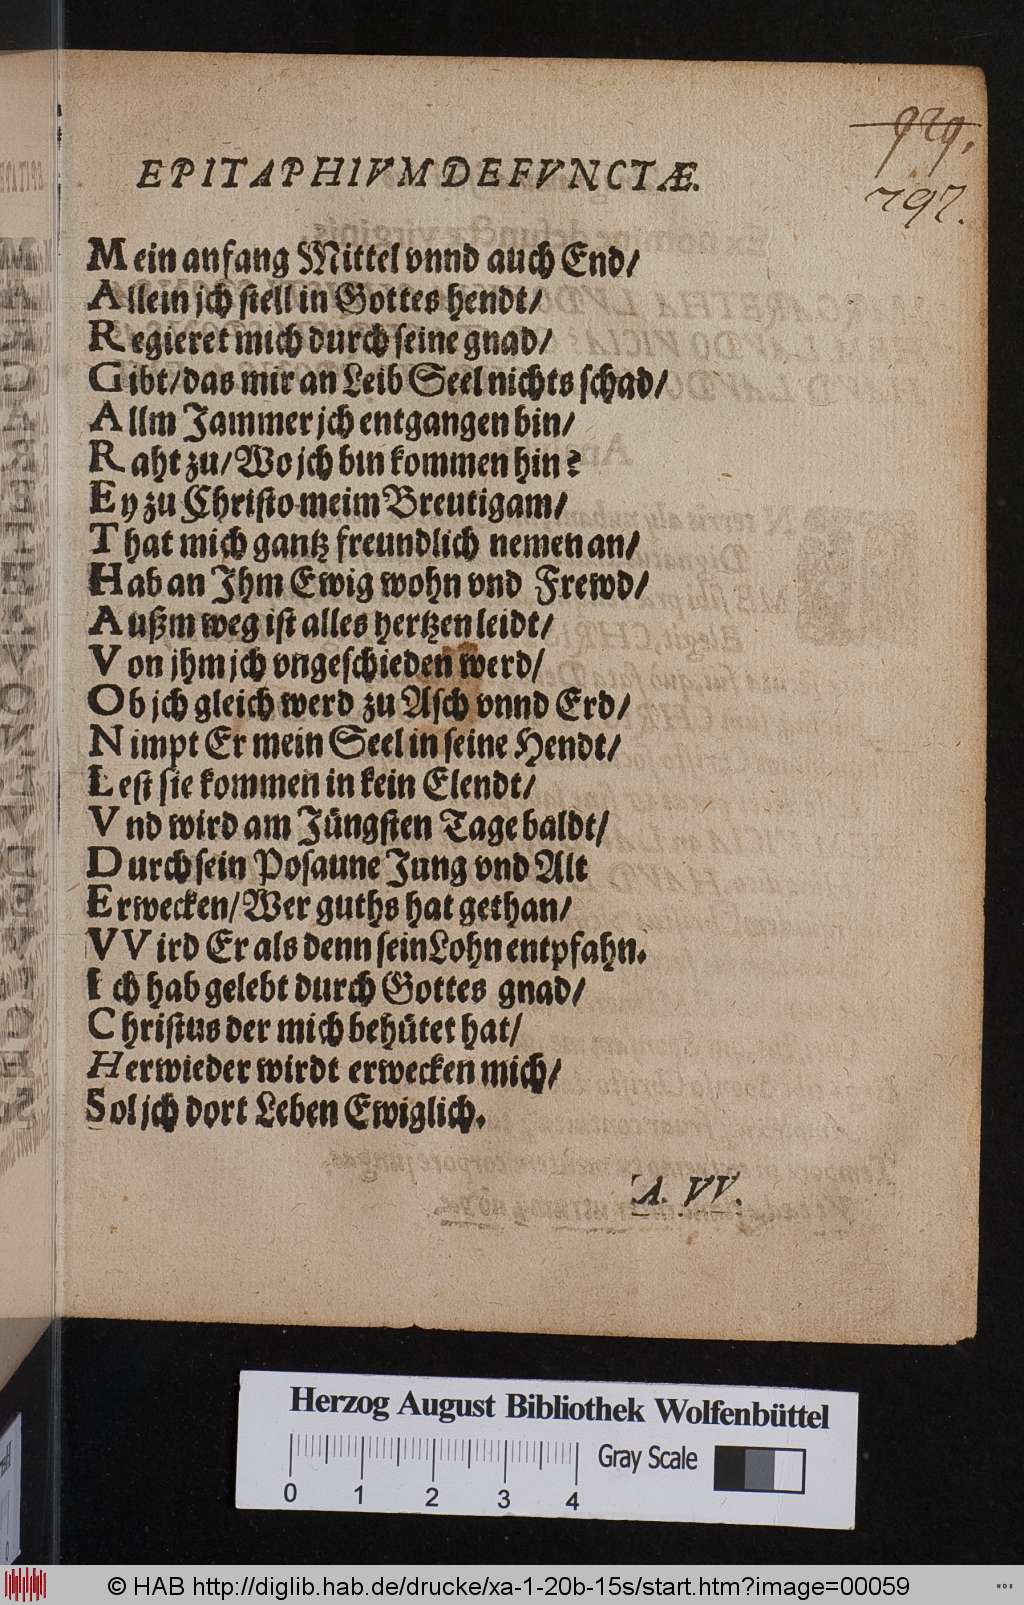 929,
797.
EPITAPHIVM DEFVNCTÆ.
Mein anfang Mittel vnnd auch End/
Allein jch stell in Gottes hendt/
Regieret mich durch seine gnad/
Gibt/das mir an Leib Seel nichts schad/
Allm Jammer jch entgangen bin/
Raht zu/Wo jch bin kommen hin?
Ey zu Christo meim Breutigam/
That mich gantz freundlich nemen an/
Hab an Jhm Ewig wohn vnd Frewd/
Außm weg ist alles hertzenleidt/
Von jhm jch vngeschieden werd/
Ob jch gleich werd zu Asch vnnd Erd/
Nimpt Er mein Seel in seine Hendt/
Lest sie kommen in kein Elendt/
Vnd wird am Jüngsten Tage baldt/
Durch sein Posaune Jung vnd Alt
Erwecken/Wer guths hat gethan/
VVird Er als denn sein Lohn entpfahn.
Ich hab gelebt durch Gottes gnad/
Christus der mich behütet hat/
Herwieder wirdt erwecken mich/
Sol jch dort Leben Ewiglich.
A. VV.
Herzog August Bibliothek Wolfenbüttel
Gray Scale
0 1 2 3 4
© HAB http://diglib.hab.de/drucke/xa-1-20b-15s/start.htm?image=00059